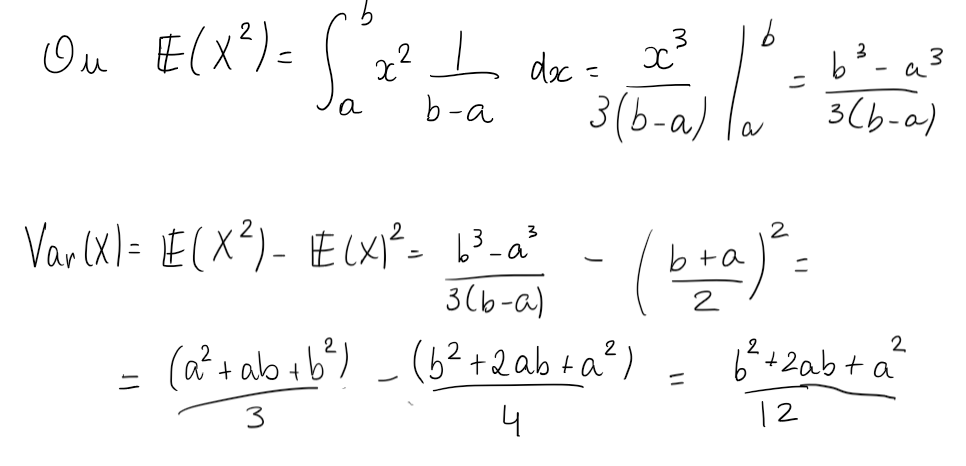 Ou E(X²) = ∫_a^b x² 1/(b-a) dx = x³/(3(b-a)) |_a^b = (b³-a³)/(3(b-a))
Var(X) = E(X²) - E(X)² = (b³-a³)/(3(b-a)) - ((b+a)/2)² =
= (a²+ab+b²)/3 - (b²+2ab+a²)/4 = (b²+2ab+a²)/12